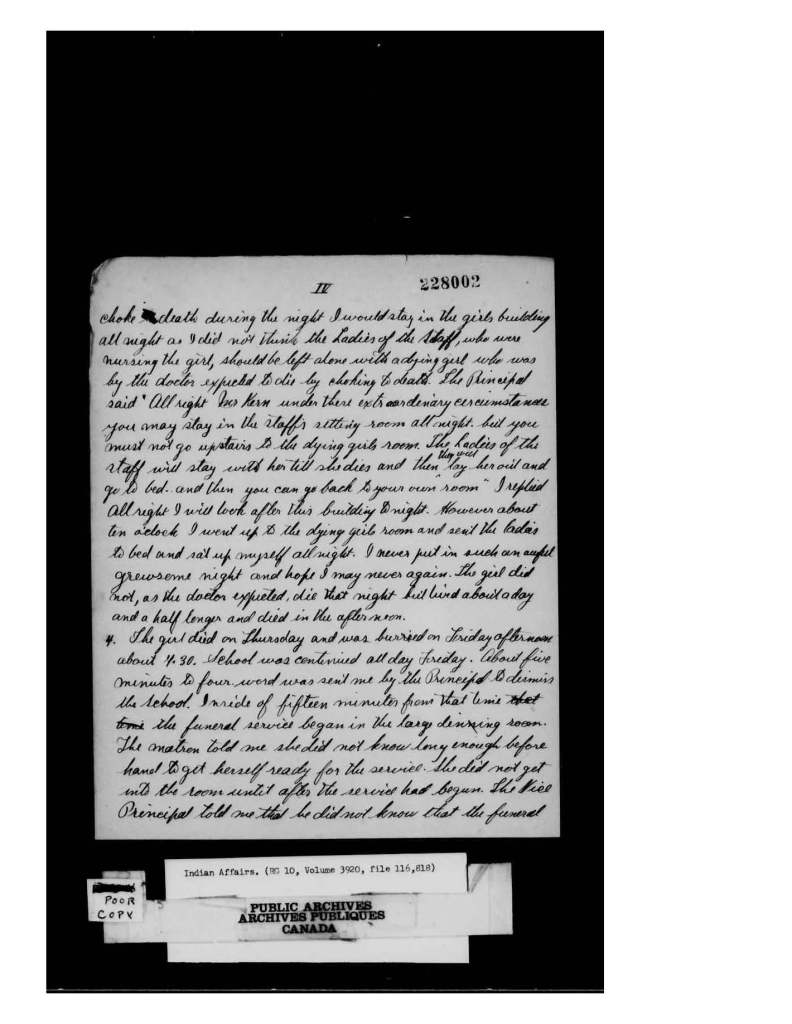 IV
228002
choke death during the night I would stay in the girls building
all night as I did not think the Ladies of the Staff, who were
nursing the girl, should be left alone with a dying girl who was
by the doctor expected to die by choking to death. The Principal
said "All right Mr Kern under there extraordenary cercumstances
you may stay in the staff's setting room all night. but you
must not go upstairs to the dying girls room. The Ladies of the
staff will stay with her till she dies and then they will lay her out and
go to bed. and then you can go back to your own room" I replied
All right I will look after this building to night. However about
ten o'clock I went up to the dying girls room and sent the ladies
to bed and sat up myself all night. I never put in such an awful
grewsome night and hope I may never again. The girl did
not, as the doctor expected, die that night but lived about a day
and a half longer and died in the afternoon.
4. The girl died on Thursday and was burried on Friday afternoon
about 4.30. School was continued all day Friday. About five
minutes to four word was sent me by the Principal to dismiss
the School. Inside of fifteen minutes from that time that
time the funeral service began in the large dinning room.
The matron told me she did not know long enough before
hand to get herself ready for the service. She did not get
into the room until after the service had begun. The Vice
Principal told me that he did not know that the funeral
Indian Affairs. (RG 10, Volume 3920, file 116,818)
POOR
COPY
PUBLIC ARCHIVES
ARCHIVES PUBLIQUES
CANADA